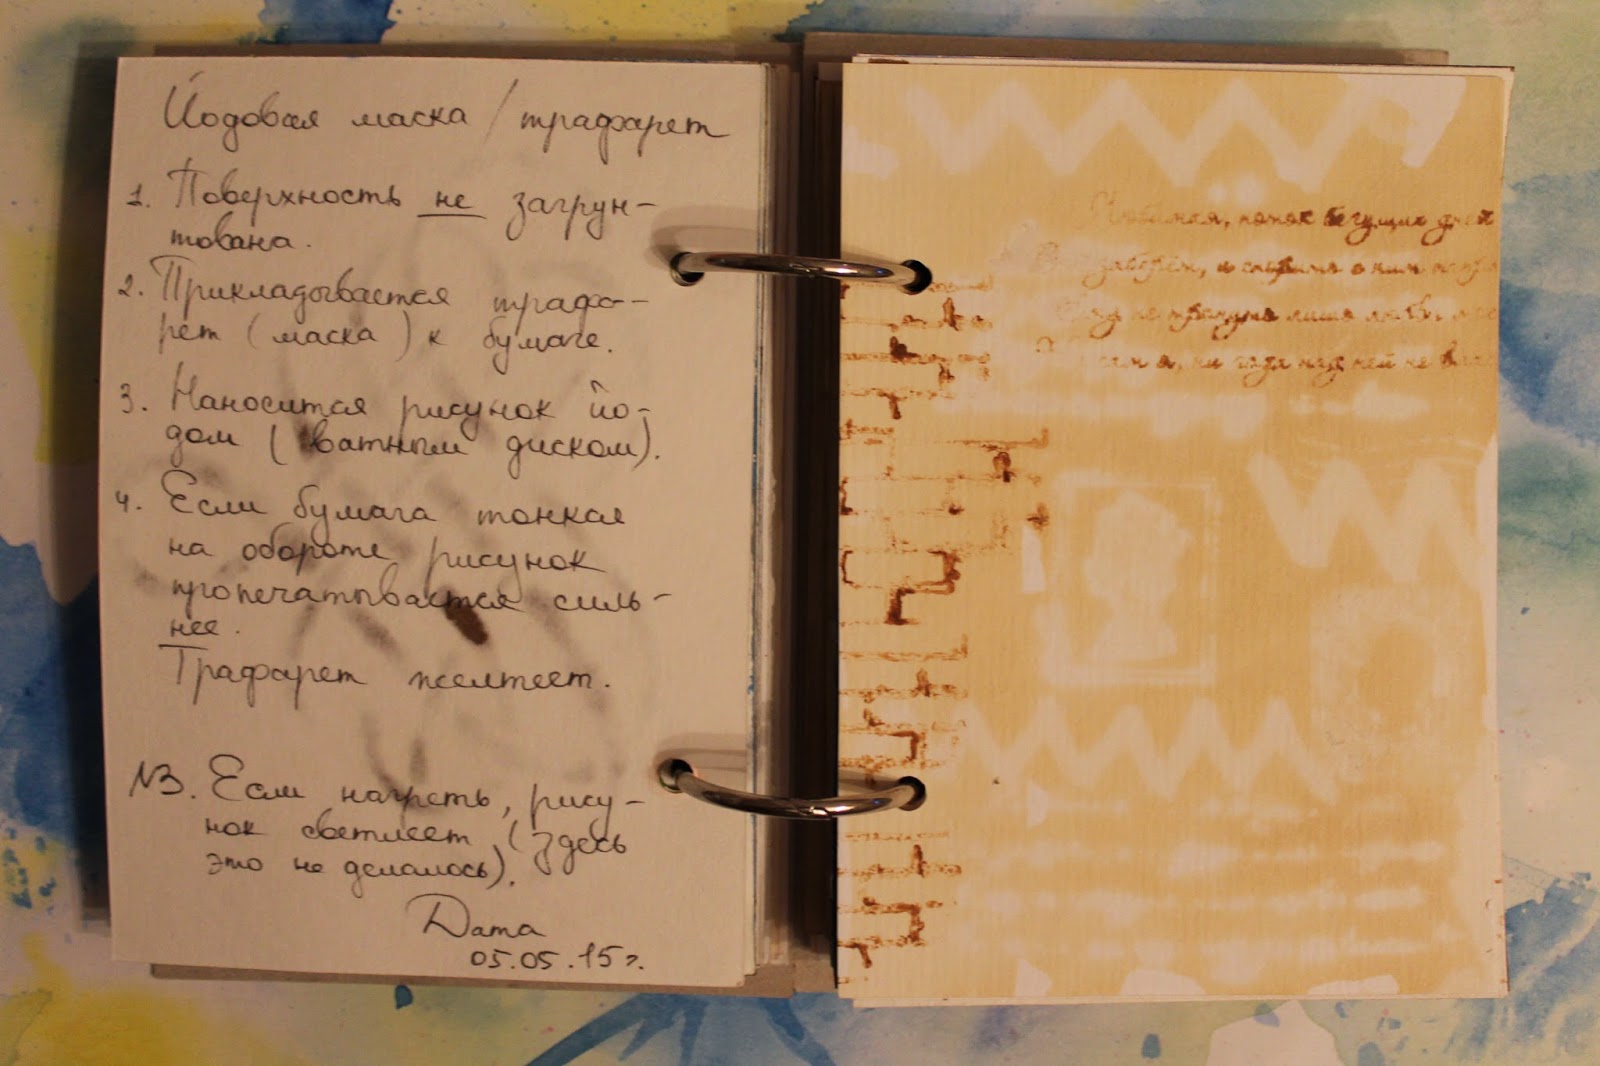 Йодовая маска / трафарет
1. Поверхность не загрун-
тована.
2. Прикладывается трафа-
рет (маска) к бумаге.
3. Наносится рисунок йо-
дом (ватным диском).
4. Если бумага тонкая
на обороте рисунок
пропечатывается силь-
нее.
Трафарет желтеет.
NB. Если нагреть, рису-
нок светлеет (здесь
это не делалось).
Дата
05.05.15г.
Любимая, поток бегущих дней
заберём, и
не тронуть лишь любви
и, ни года над ней не